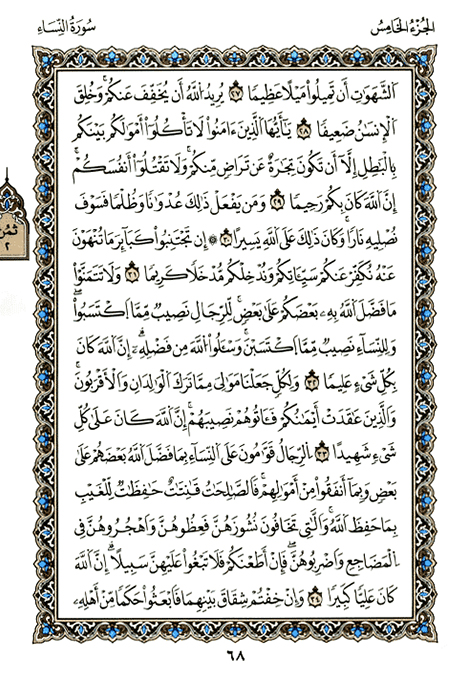 الجُزْءُ الخَامِسُ
سُورَةُ النِّسَاءِ
الشَّهَوَٰتِ أَن تَمِيلُوا۟ مَيْلًا عَظِيمًا ٢٧ يُرِيدُ اللَّهُ أَن يُخَفِّفَ عَنكُمْ ۚ وَخُلِقَ
الْإِنسَٰنُ ضَعِيفًا ٢٨ يَٰٓأَيُّهَا الَّذِينَ ءَامَنُوا۟ لَا تَأْكُلُوٓا۟ أَمْوَٰلَكُم بَيْنَكُم
بِالْبَٰطِلِ إِلَّآ أَن تَكُونَ تِجَٰرَةً عَن تَرَاضٍ مِّنكُمْ ۚ وَلَا تَقْتُلُوٓا۟ أَنفُسَكُمْ ۚ
إِنَّ اللَّهَ كَانَ بِكُمْ رَحِيمًا ٢٩ وَمَن يَفْعَلْ ذَٰلِكَ عُدْوَٰنًا وَظُلْمًا فَسَوْفَ
نُصْلِيهِ نَارًا ۚ وَكَانَ ذَٰلِكَ عَلَى اللَّهِ يَسِيرًا ٣٠ ۞ إِن تَجْتَنِبُوا۟ كَبَآئِرَ مَا تُنْهَوْنَ
عَنْهُ نُكَفِّرْ عَنكُمْ سَيِّـَٔاتِكُمْ وَنُدْخِلْكُم مُّدْخَلًا كَرِيمًا ٣١ وَلَا تَتَمَنَّوْا۟
مَا فَضَّلَ اللَّهُ بِهِۦ بَعْضَكُمْ عَلَىٰ بَعْضٍ ۚ لِّلرِّجَالِ نَصِيبٌ مِّمَّا اكْتَسَبُوا۟ ۖ
وَلِلنِّسَآءِ نَصِيبٌ مِّمَّا اكْتَسَبْنَ ۚ وَسْـَٔلُوا۟ اللَّهَ مِن فَضْلِهِۦٓ ۗ إِنَّ اللَّهَ كَانَ
بِكُلِّ شَىْءٍ عَلِيمًا ٣٢ وَلِكُلٍّ جَعَلْنَا مَوَٰلِىَ مِمَّا تَرَكَ الْوَٰلِدَانِ وَالْأَقْرَبُونَ ۚ
وَالَّذِينَ عَقَدَتْ أَيْمَٰنُكُمْ فَـَٔاتُوهُمْ نَصِيبَهُمْ ۚ إِنَّ اللَّهَ كَانَ عَلَىٰ كُلِّ
شَىْءٍ شَهِيدًا ٣٣ الرِّجَالُ قَوَّٰمُونَ عَلَى النِّسَآءِ بِمَا فَضَّلَ اللَّهُ بَعْضَهُمْ عَلَىٰ
بَعْضٍ وَبِمَآ أَنفَقُوا۟ مِنْ أَمْوَٰلِهِمْ ۚ فَالصَّٰلِحَٰتُ قَٰنِتَٰتٌ حَٰفِظَٰتٌ لِّلْغَيْبِ
بِمَا حَفِظَ اللَّهُ ۚ وَالَّٰتِى تَخَافُونَ نُشُوزَهُنَّ فَعِظُوهُنَّ وَاهْجُرُوهُنَّ فِى
الْمَضَاجِعِ وَاضْرِبُوهُنَّ ۖ فَإِنْ أَطَعْنَكُمْ فَلَا تَبْغُوا۟ عَلَيْهِنَّ سَبِيلًا ۗ إِنَّ اللَّهَ
كَانَ عَلِيًّا كَبِيرًا ٣٤ وَإِنْ خِفْتُمْ شِقَاقَ بَيْنِهِمَا فَابْعَثُوا۟ حَكَمًا مِّنْ أَهْلِهِۦ
ثُمُن
٢
٦٨